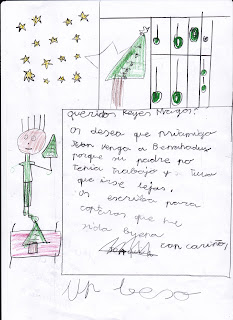 queridos Reyes Magos:
Os desea que mi amigo
Iban venga a Benahadux
porque su padre no
tenia trabajo y tuvo
que irse lejos.
Os escribo para
contaros que he
sido buena
con cariño,
Un beso